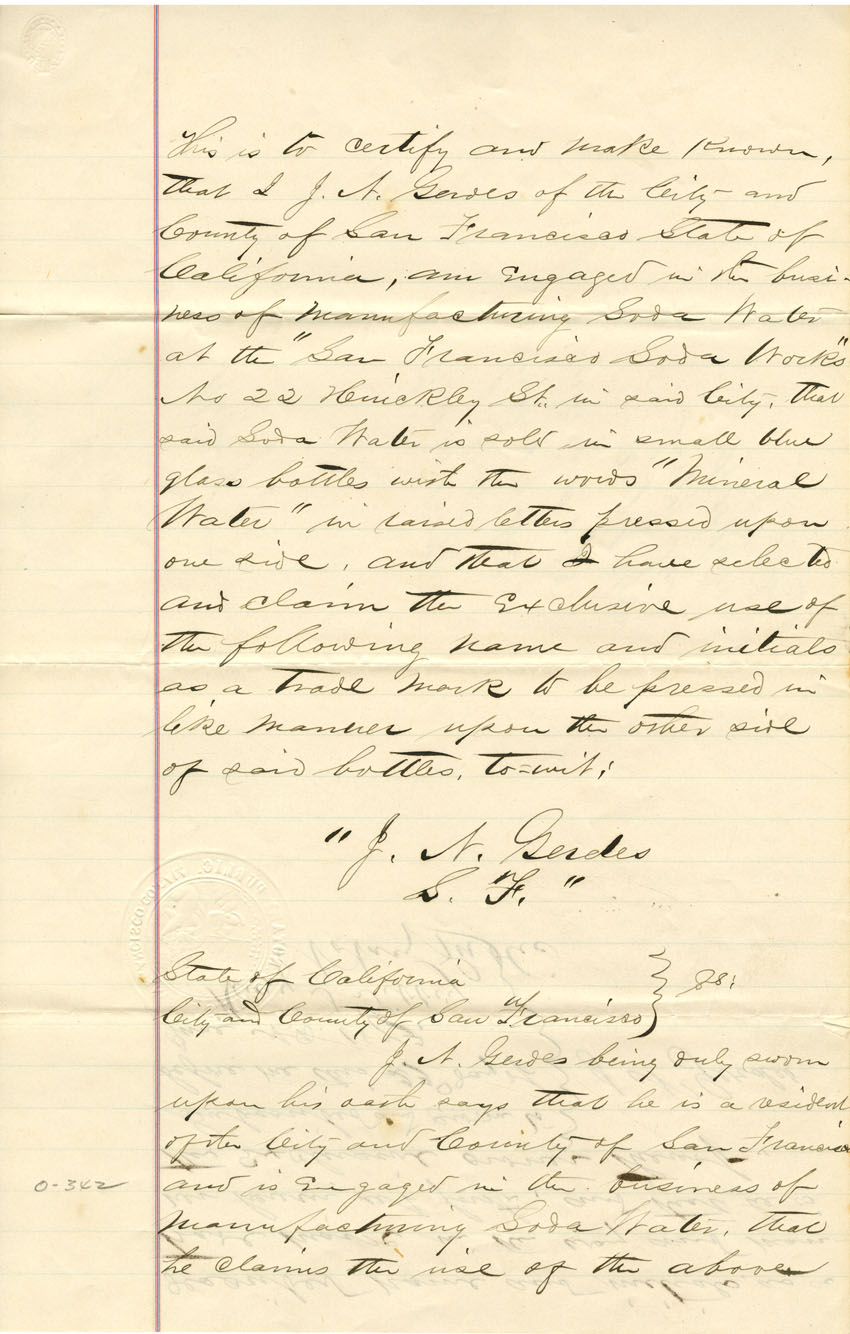 This is to certify and make known,
that I J. N. Gerdes of the City and
County of San Francisco State of
California, am engaged in the busi-
ness of manufacturing Soda Water
at the "San Francisco Soda Works"
No 22 Hinckley St. in said City, that
said Soda Water is sold in small blue
glass bottles with the words "Mineral
Water" in raised letters pressed upon
one side, and that I have selected
and claim the exclusive use of
the following name and initials
as a trade mark to be pressed in
like manner upon the other side
of said bottles, to-wit:
"J. N. Gerdes
S. F."
State of California
City and County of San Francisco } ss:
J. N. Gerdes being duly sworn
upon his oath says that he is a resident
of the City and County of San Francisco
0-342
and is engaged in the business of
manufacturing Soda Water, that
he claims the use of the above